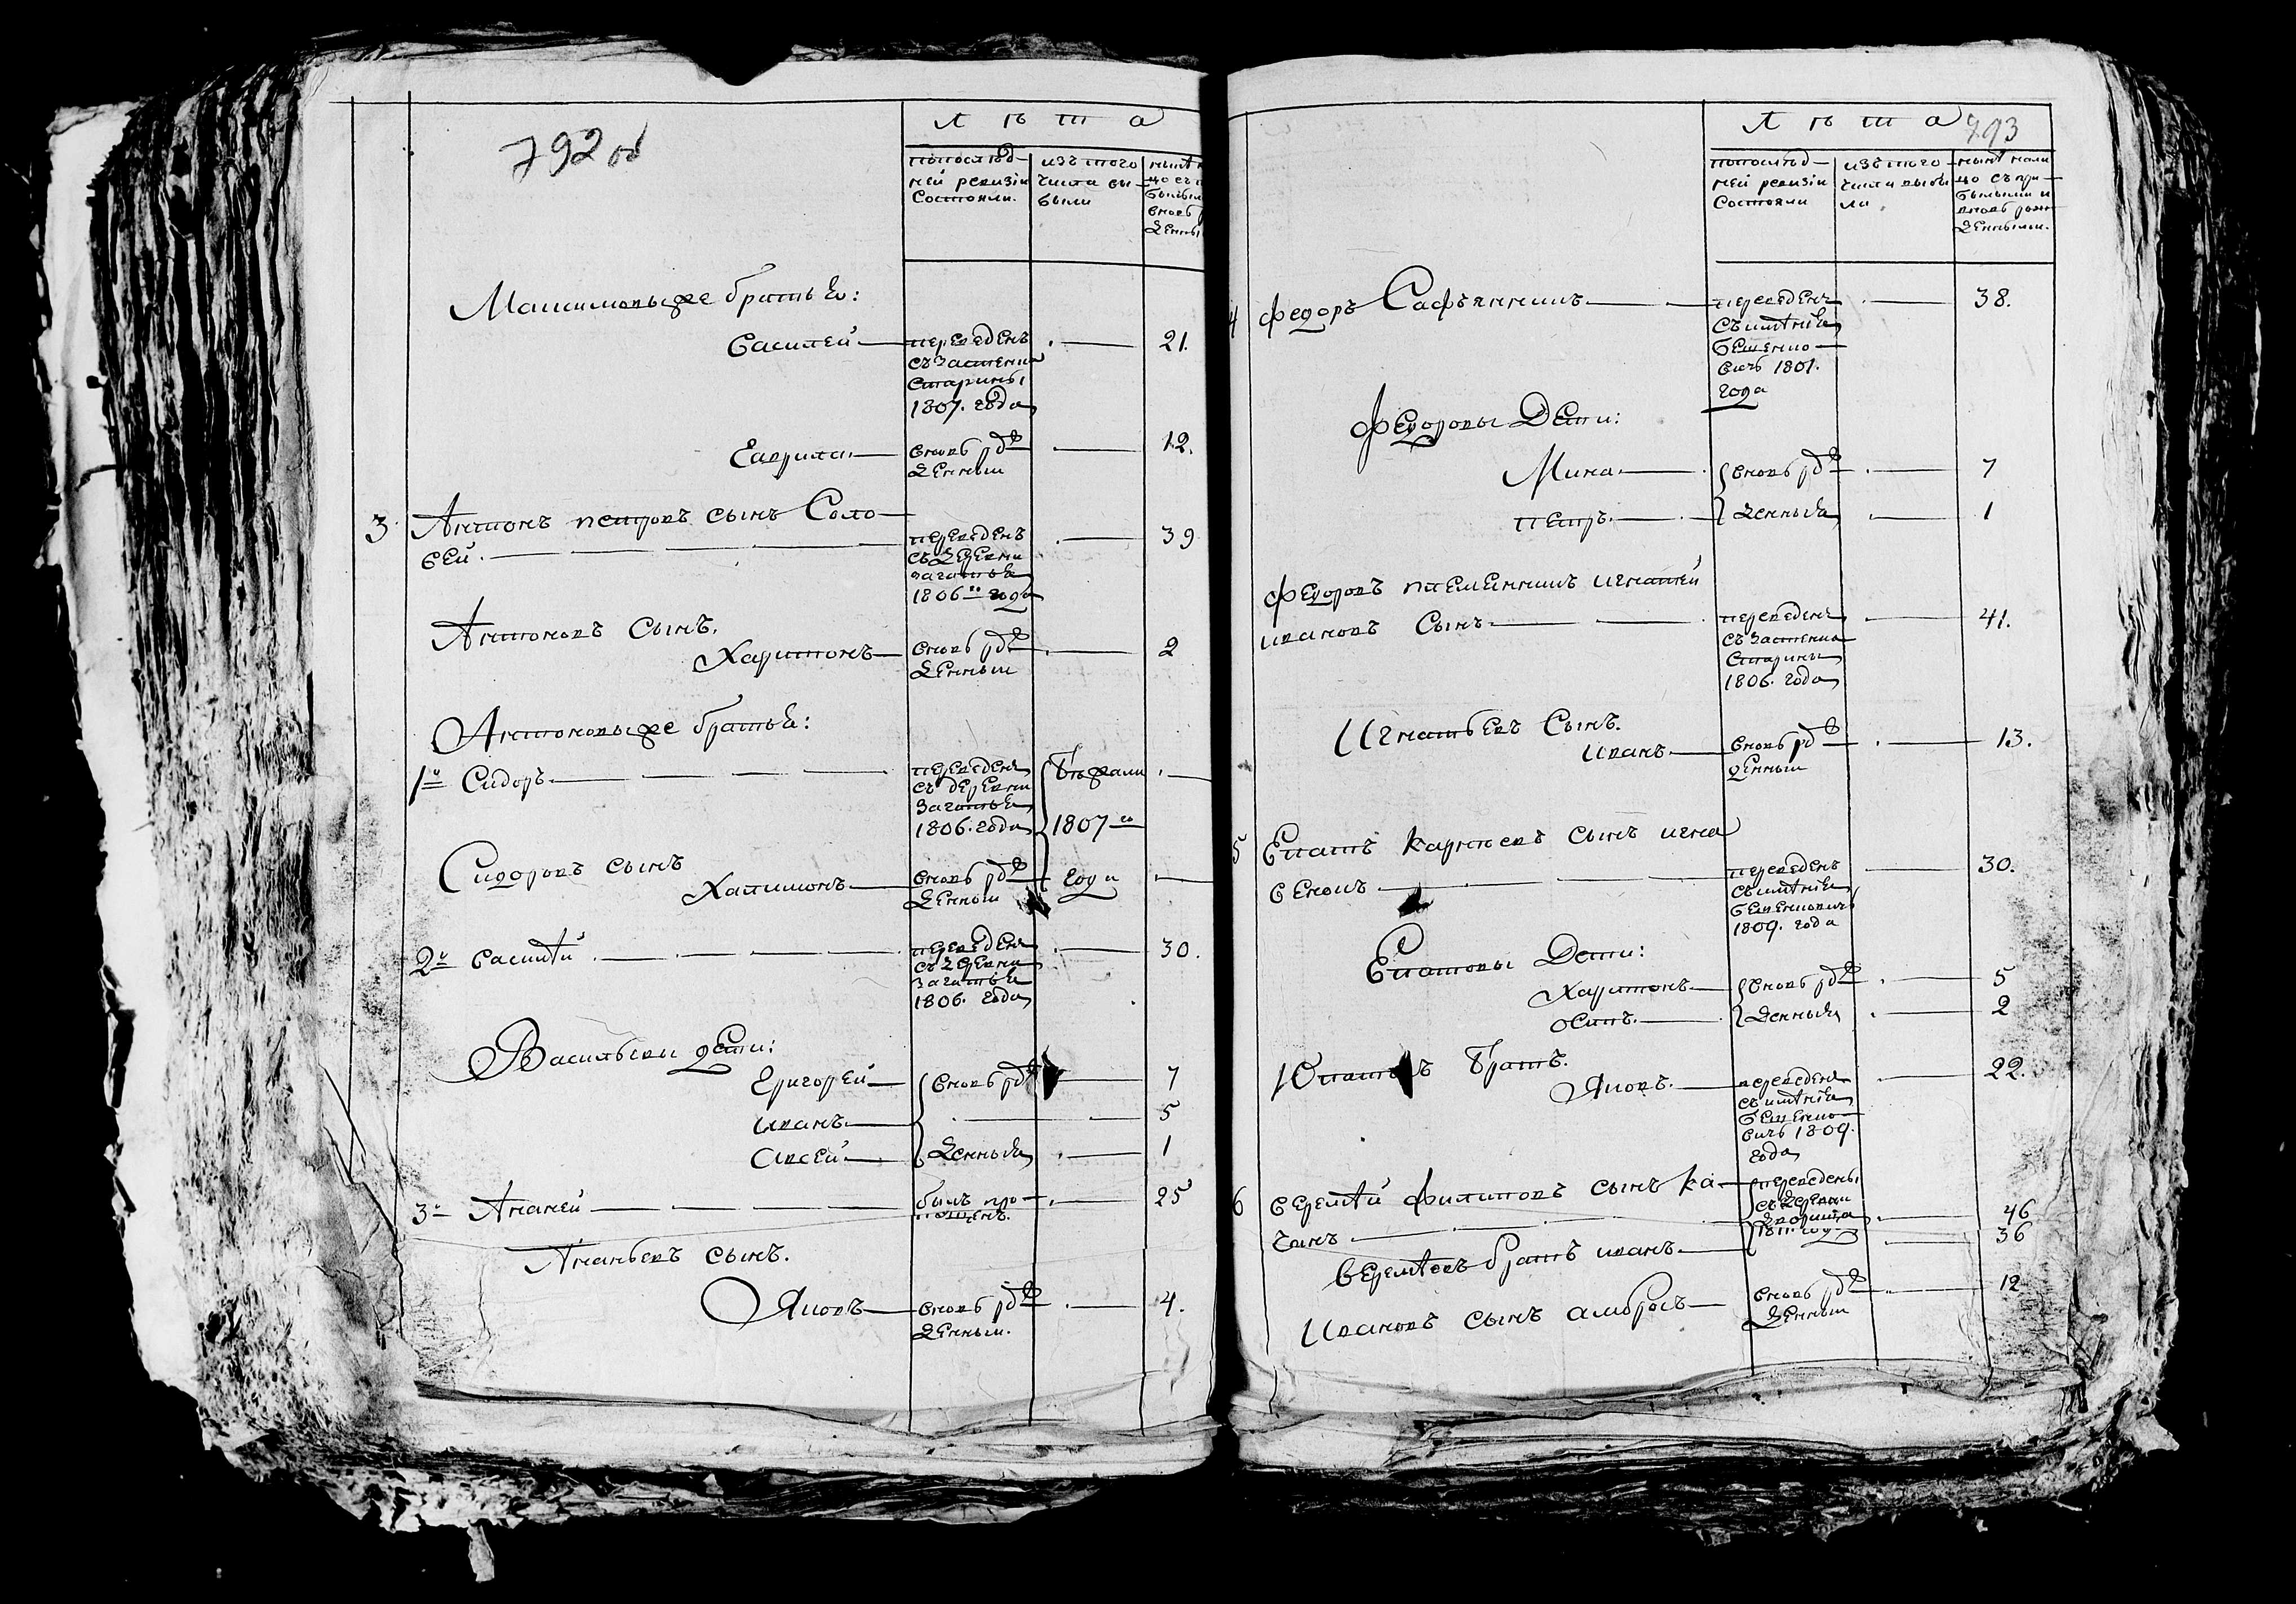 792 об
Лѣта
попослѣд-
ней ревизіи
состояли.
изъ того
числа вы-
были
Максимовы же братья:
Василей
переведенъ
съ застенка
Старины
1807. года
21.
Гаврила
вновь рож
денный
12.
3. Антонъ петровъ сынъ Соло-
вей.
переведенъ
съ деревни
загатья
1806го года
39
Антоновъ сынъ.
Харитонъ
вновь рож
денный
2
Антоновы же братья:
1й Сидоръ
переведенъ
съ деревни
Загатья
1806. года
бѣжали
1807го
года
Сидоровъ сынъ
Халимонъ
вновь рож
денный
2й Василѣй
переведенъ
съ деревни
Загатья
1806. года
30.
Васильевы дети:
Григорей
вновь рож
7
иванъ
5
Авсей
денныя
1
3й Ананей
былъ про-
пощенъ.
25
Ананьевъ сынъ.
Яковъ
вновь рож
денный.
4.
793
Лѣта
попослѣд-
ней ревизіи
состояли
изъ того
числа выбы
ли
нынѣ нали
цо съ при-
былыми и
вновь рож
денными.
4 Федоръ Сафьянникъ
переведенъ
съ имѣнія
бешенко-
вичь 1801.
года
38.
Федоровы Дети:
Мина
вновь рож
7
петръ
денныя
1
Федоровъ племенникъ игнатей
ивановъ Сынъ
переведенъ
съ застенка
Старины
1806. года
41.
Игнатьевъ Сынъ.
иванъ
вновь рож
денный
13.
5 Епатъ карпѣевъ сынъ игна
венокъ
переведенъ
съ имѣнія
бешенковичь
1809. года
30.
Епатовы Дети:
Харитонъ
вновь рож
5
осипъ
денныя
2
братъ.
Яковъ
переведенъ
съ имѣнія
бешенко-
вичь 1809.
года
22.
6 Веремѣй филиповъ сынъ ка-
чанъ
переведены
съ деревни
дворища
1811. году
46
Веремѣевъ братъ иванъ
36
Ивановъ сынъ амбросъ
вновь рож
денный
12